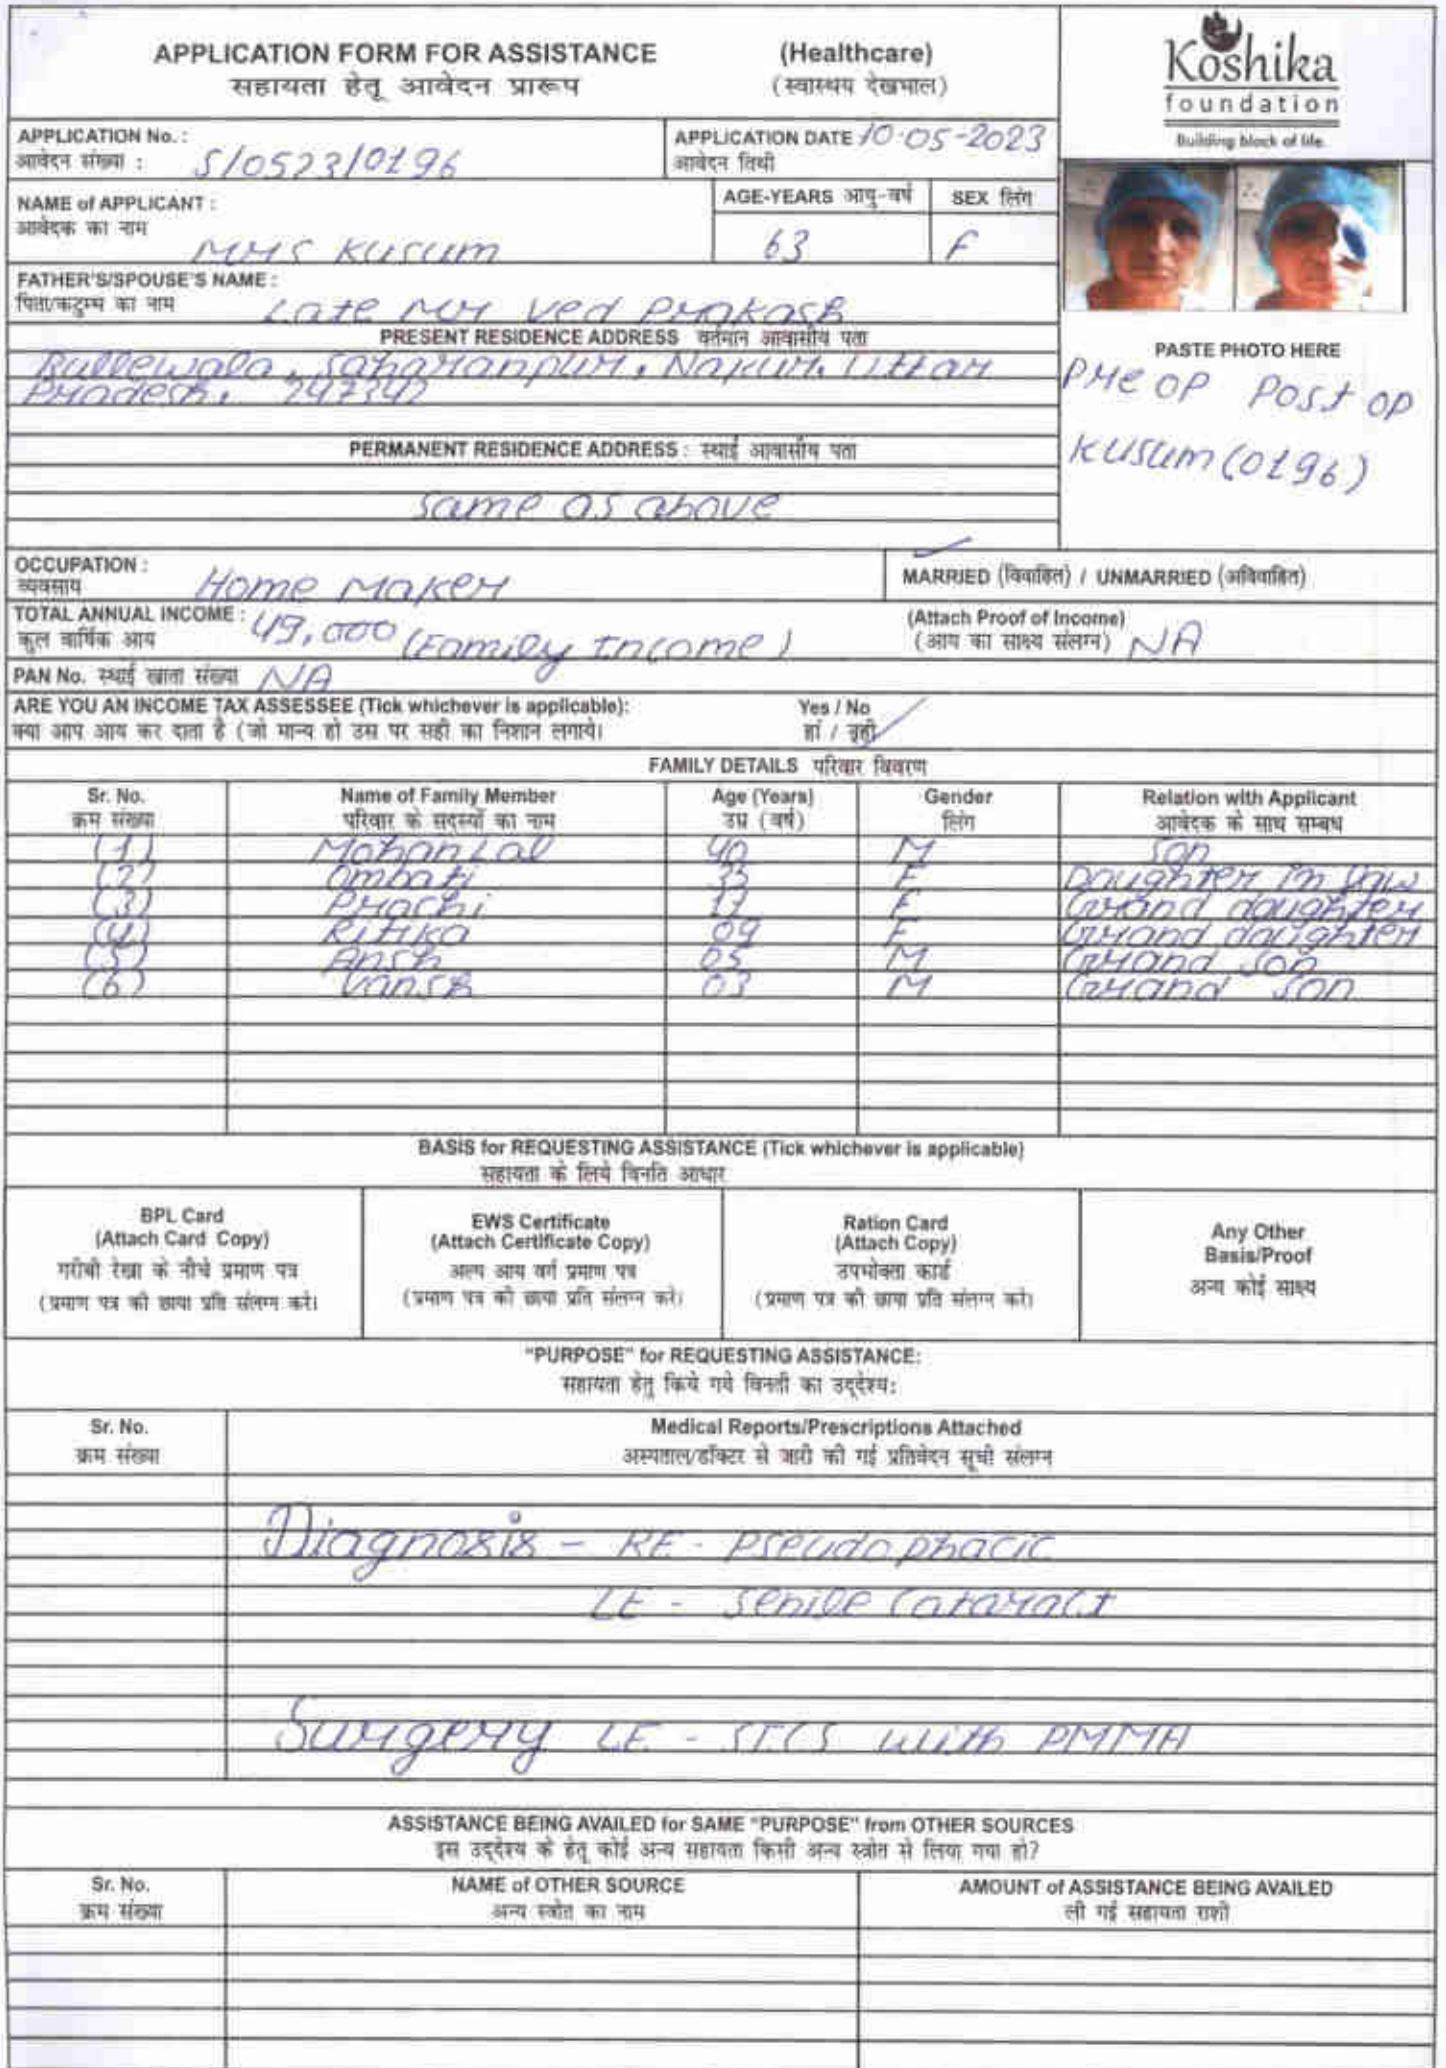 APPLICATION FORM FOR ASSISTANCE (Healthcare)
सहायता हेतू आवेदन प्रारूप (स्वास्थय देखभाल)
Koshika
foundation
Building block of life.
APPLICATION No. : S/0523/0196
आवेदन संख्या :
APPLICATION DATE 10-05-2023
आवेदन तिथी
NAME of APPLICANT : Mrs Kusum
आवेदक का नाम
AGE-YEARS आयु-वर्ष 63
SEX लिंग F
FATHER'S/SPOUSE'S NAME : Late Mr Ved Prakash
पिता/कटुम्ब का नाम
PRESENT RESIDENCE ADDRESS वर्तमान आवासीय पता
Saharanpur, Nakur, Uttar
Pradesh, 247342
PERMANENT RESIDENCE ADDRESS : स्थाई आवासीय पता
Same as above
PASTE PHOTO HERE
Pre op Post op
Kusum (0196)
OCCUPATION : Home Maker
व्यवसाय
MARRIED (विवाहित) / UNMARRIED (अविवाहित)
TOTAL ANNUAL INCOME : 49,000 (Family Income)
कुल वार्षिक आय
(Attach Proof of Income)
(आय का साक्ष्य संलग्न) NA
PAN No. स्थाई खाता संख्या NA
ARE YOU AN INCOME TAX ASSESSEE (Tick whichever is applicable): Yes / No
क्या आप आय कर दाता है (जो मान्य हो उस पर सही का निशान लगाये। हां / नहीं
FAMILY DETAILS परिवार विवरण
Sr. No. Name of Family Member Age (Years) Gender Relation with Applicant
क्रम संख्या परिवार के सदस्यों का नाम उम्र (वर्ष) लिंग आवेदक के साथ सम्बध
(1) Mohan Lal 40 M Son
(2) Ombati F Daughter in law
(3) Prachi 17 F Grand daughter
(4) Ritika 09 F Grand daughter
(5) Ansh 05 M Grand Son
(6) Vansh 03 M Grand Son
BASIS for REQUESTING ASSISTANCE (Tick whichever is applicable)
सहायता के लिये विनति आधार
BPL Card
(Attach Card Copy)
गरीबी रेखा के नीचे प्रमाण पत्र
(प्रमाण पत्र की छाया प्रति संलग्न करे।
EWS Certificate
(Attach Certificate Copy)
अल्प आय वर्ग प्रमाण पत्र
(प्रमाण पत्र की छाया प्रति संलग्न करे।
Ration Card
(Attach Copy)
उपभोक्ता कार्ड
(प्रमाण पत्र की छाया प्रति संलग्न करे।
Any Other
Basis/Proof
अन्य कोई साक्ष्य
"PURPOSE" for REQUESTING ASSISTANCE:
सहायता हेतु किये गये विनती का उद्देश्य:
Sr. No. Medical Reports/Prescriptions Attached
क्रम संख्या अस्पताल/डॉक्टर से जारी की गई प्रतिवेदन सूची संलग्न
Diagnosis - RE - Pseudophacic
LE - Senile Cataract
Surgery LE - SICS with PMMA
ASSISTANCE BEING AVAILED for SAME "PURPOSE" from OTHER SOURCES
इस उद्देश्य के हेतू कोई अन्य सहायता किसी अन्य स्त्रोत से लिया गया हो?
Sr. No. NAME of OTHER SOURCE AMOUNT of ASSISTANCE BEING AVAILED
क्रम संख्या अन्य स्त्रोत का नाम ली गई सहायता राशी